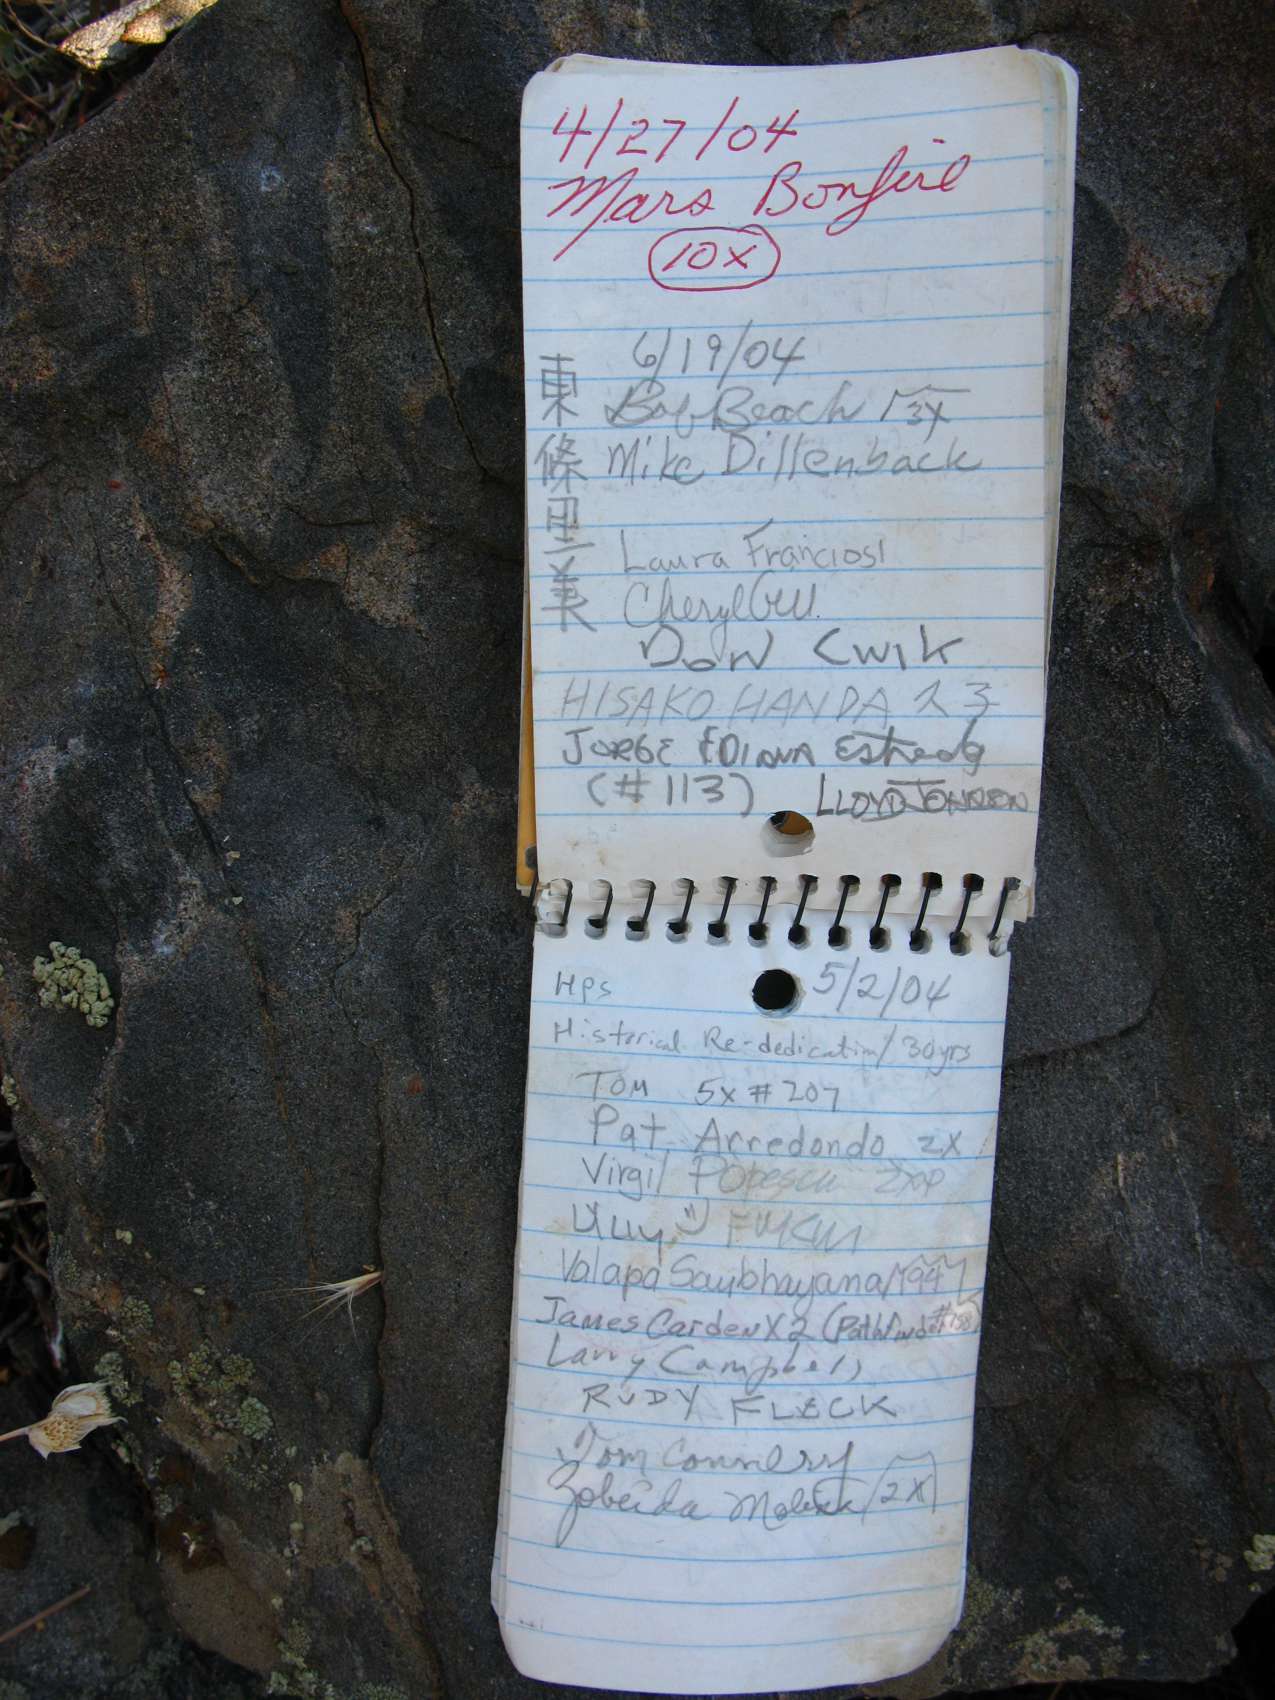 4/27/04
Mars Bonfire
10x
6/19/04
東條
Beach 3x
Mike Dillenback
Laura Franciosi
Cheryl Gill.
Don Cwik
HISAKO HANDA 久子
JORGE & DIANA Estrada
(#113) LLOYD JOHNSON
HPS 5/2/04
Historical Re-dedication/30yrs
TOM 5x #207
Pat Arredondo 2X
Virgil Popescu
Valapa Saubhayana
James Carden X2 (Pathfinder
Larry Campbell
RUDY FLECK
Tom Connery
Zobeida Molina 2X